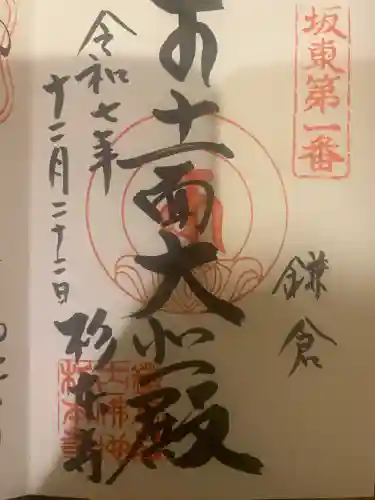 坂東第一番
鎌倉
十一面大悲殿
杉本寺
令和七年
十二月二十二日